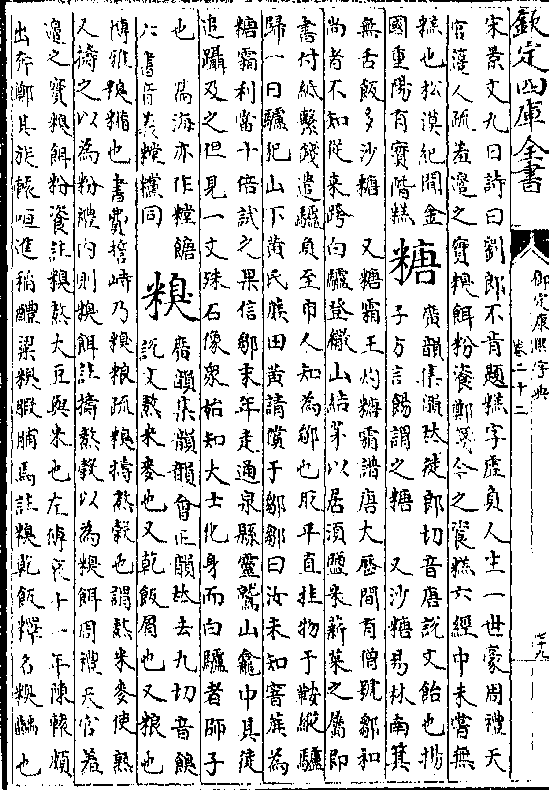 欽定四庫全書
御定康熙字典
卷二十二
宋景文九日詩曰劉郎不肯題糕字虛負人生一世豪周禮天
官籩人疏羞籩之實糗餌粉餈鄭箋今之餈糕六經中未嘗無
糕也松漠紀聞金
國重陽有寶階糕
糖
廣韻集韻𠀤徒郎切音唐說文飴也揚
子方言餳謂之糖 又沙糖易林南箕
無舌飯多沙糖 又糖霜王灼糖霜譜唐大曆間有僧號鄒和
尚者不知從來跨白驢登繖山結茅以居須鹽米薪菜之屬即
書付紙繫錢遣驢負至市人知為鄒也取平直挂物于鞍縱驢
歸一日驢犯山下黃氏蔗田黃請償于鄒鄒曰汝未知窨蔗為
糖霜利當十倍試之果信鄒末年走通泉縣靈鷲山龕中其徒
追躡及之但見一文殊石像衆始知大士化身而白驢者師子
也 咼海亦作糛餹
六書音義糛糖同
糗
廣韻集韻韻會正韻𠀤去九切音餱
說文熬米麥也又乾飯屑也又粮也
博雅糗糒也書費誓峙乃糗粮疏糗擣熬穀也謂熬米麥使熟
又擣之以為粉禮內則糗餌註擣熬穀以為糗餌周禮天官羞
籩之實糗餌粉餈註糗熬大豆與米也左傳哀十一年陳轅頗
出奔鄭其族轅咺進稻醴粱糗腶脯焉註糗乾飯釋名糗齲也